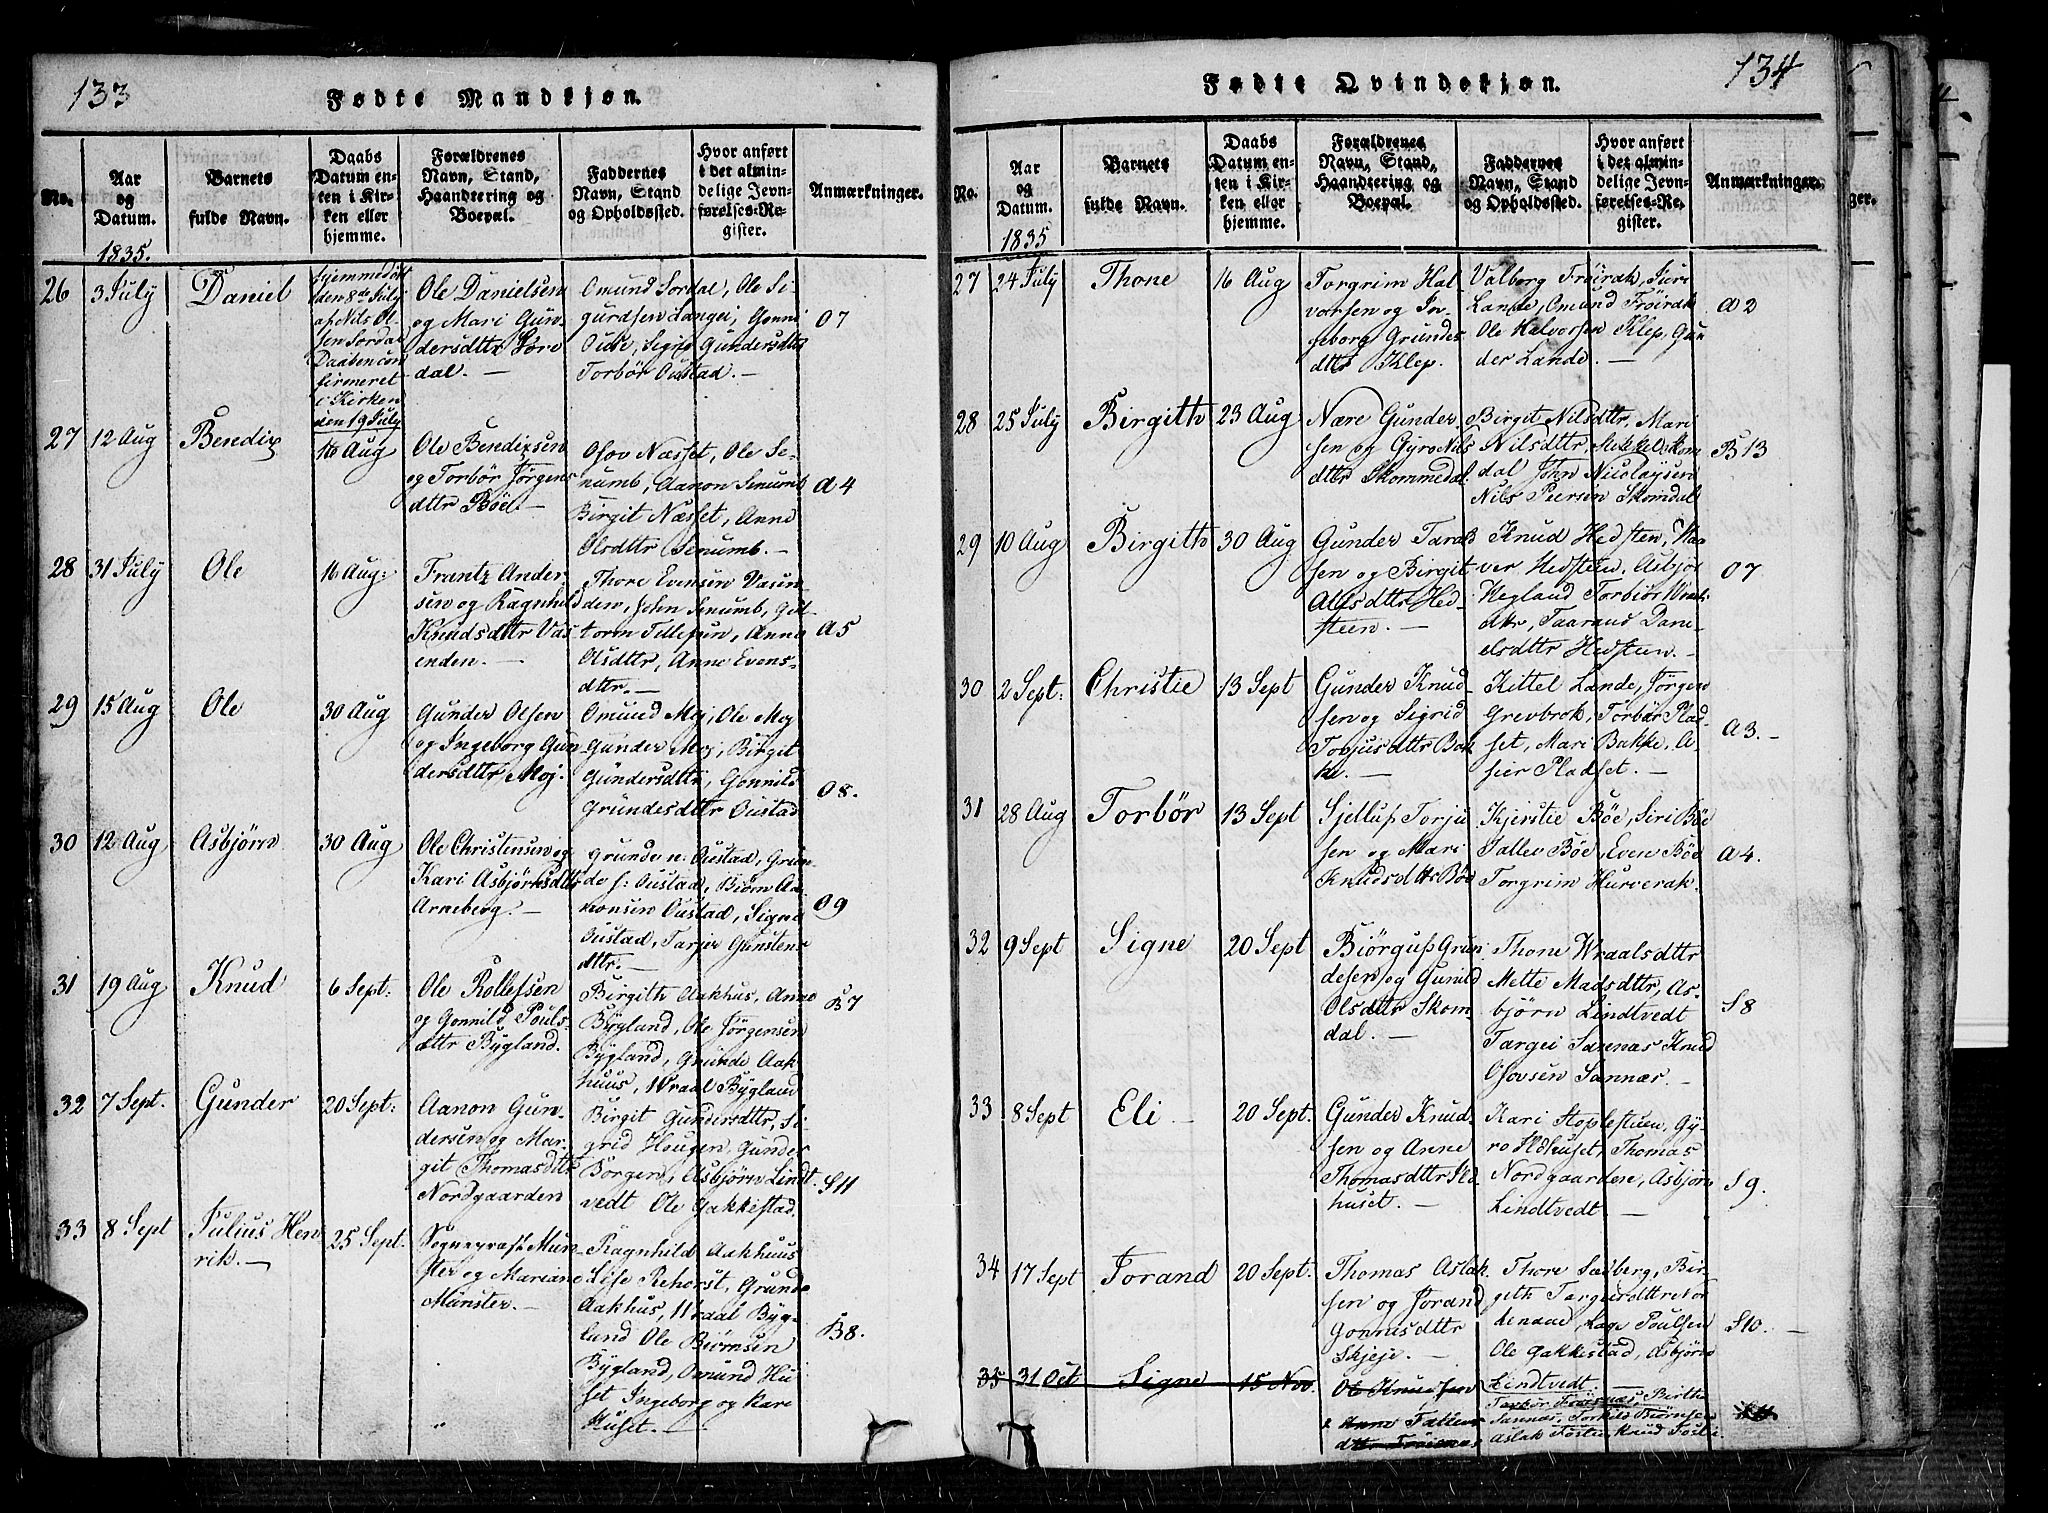 133
Fødte Mandkjøn.
No.
Aar
og
Datum.
1835.
Barnets
fulde Navn.
Daabs
Datum en-
ten i Kir-
ken eller
hjemme.
Forældrenes
Navn, Stand,
Haandtering og
Boepæl.
Faddernes
Navn, Stand
og Opholdssted.
Hvor anført
i det almin-
delige Jevn-
førelses-Re-
gister.
Anmærkninger.
26
3 July
Daniel
hjemmedøbt
den 8de July
af Nils Ol-
sen Sordal
Daaben con
firmeret
i Kirken
den 19 July
Ole Danielsen
og Mari Gun-
dersdttr Sore
dal. —
Omund Sordal, Ole Si-
gurdsen Langei, Gonni
Ouse, Signe Gundersdttr
Torbør Oustad. —
O7
27
12 Aug
Bendix
16 Aug
Ole Bendixsen
og Torbør Jørgens
dttr Böe. —
Osov Næsset, Ole Se-
numb, Aanon Senumb
Birgit Næsset, Anne
Olsdttr Senumb. —
A4
28
31 July
Ole
16 Aug:
Frantz Ander-
sen og Ragnhild
Knudsdttr Vas
enden. —
Thore Evensen Vasen-
den, John Senumb, Gut-
torm Tellefsen, Anne
Olsdttr, Anne Evens-
dttr. —
A5
29
15 Aug
Ole
30 Aug
Gunder Olsen
og Ingeborg Gun
dersdttr Moj.
Omund Moj, Ole Moj
Gunder Moj, Birgit
Gundersdttr, Gonnild
Grundesdttr Oustad
O8.
30
12 Aug
Asbjørn
30 Aug
Ole Christensen og
Kari Asbjørnsdttr
Arneberg. —
Grunde n: Oustad, Grun
de s: Oustad, Biørn Aa-
nonsen Oustad, Signe
Oustad, Tarjer Gunstens
dttr. —
O9
31
19 Aug
Knud
6 Sept:
Ole Rollefsen
og Gonnild Pouls-
dttr Bygland.
Birgith Aakhus, Anne
Bygland, Ole Jørgensen
Bygland, Grunde Aak
huus, Wraal Bygland
B7
32
7 Sept.
Gunder
20 Sept:
Aanon Gun-
dersen og Mar-
git Thomasdttr
Nordgaarden
Birgit Gundersdttr, Si
grid Hougen, Gunder
Borgen, Asbjørn Lindt
vedt Ole Gakkestad.
S11
33
8 Sept
Julius Hen
rik. —
25 Sept.
Sognepræst Mun-
ster og Mariane
Münster. —
Ragnhild Aakhuus
Lise Rehorst, Grunde
Aakhus, Wraal Byg-
lund Ole Biørnsen
Bygland, Omund Hu
set Ingeborg og Kari
Huset. —
B8.
134
Fødte Qvindekjøn.
No.
Aar
og
Datum.
1835
Barnets
fulde Navn.
Daabs
Datum en-
ten i Kir-
ken eller
hjemme.
Forældrenes
Navn, Stand,
Haandtering og
Boepæl.
Faddernes
Navn, Stand
og Opholdssted.
Hvor anført
i det almin-
delige Jevn-
førelses-Re-
gister.
Anmærkninger.
27
24 July
Thone
16 Aug
Torgrim Hal
vorsen og In-
geborg Grundes
dttr Klep.
Valborg Frøirak, Juri
Lande, Omund Frøirak
Ole Halvorsen Klep, Gun
der Lande. —
A2
28
25 July
Birgith
23 Aug
Nære Gunder
sen og Gyro Nils
dttr Skommedal
Birgit Nilsdttr, Mari
Nilsdttr, Mikkel Skom
dal John Nicolaysen
Nils Peersen Skomdal
B13
29
10 Aug
Birgith
30 Aug
Gunder Tarald
sen og Birgit
Alfsdttr Hed-
steen. —
Knud Hedsten, Haa
ver Hedsteen, Asbjør
Hegland Torbiør Wraals
dttr, Taaraud Dani-
elsdttr Hedsteen. —
O7
30
2 Sept:
Christie
13 Sept
Gunder Knud-
sen og Sigrid
Torjusdttr Bak
ke. —
Kittel Lande, Jørgen
Grevbrok, Torbør Plad-
set, Mari Bakke, A-
sier Pladset. —
A3. —
31
28 Aug
Torbör
13 Sept
Sjelluf Torju
sen og Mari
Knudsdttr Böe
Kjerstie Böe, Siri Böe
Tallev Böe, Even Böe
Torgrim Hurverak.
A4.
32
9 Sept
Signe
20 Sept
Biörguf Grun
desen og Gunild
Olsdttr Skom-
dal. —
Thone Wraalsdttr
Mette Madsdttr, As-
björn Lindtvedt
Targei Sanenas Knud
Osovsen Sannæs. —
S8
33
8 Sept
Eli —
20 Sept.
Gunder Knud-
sen og Anne
Thomasdttr Ild
huset. —
Kari Stoplesteen, Gy-
ro Ildhuset, Thomas
Nordgaarden, Asbjørn
Lindtvedt —
S9.
34
17 Sept
Jorand
20 Sept.
Thomas Aslak
sen og Jorand
Gonnesdttr
Skjeje. —
Thore Sadberg, Bir-
Aage Poulsen
Ole Gakkestad, Asbjørn
Lindtvedt. —
S10. —
35
31 Oct
Signe
15 Nov.
Ole Knudsen
Tallevs
dttr Frøisnæs
Torbör Frøisnæs, Birthe
Sannæs, Torkild Biørnsen